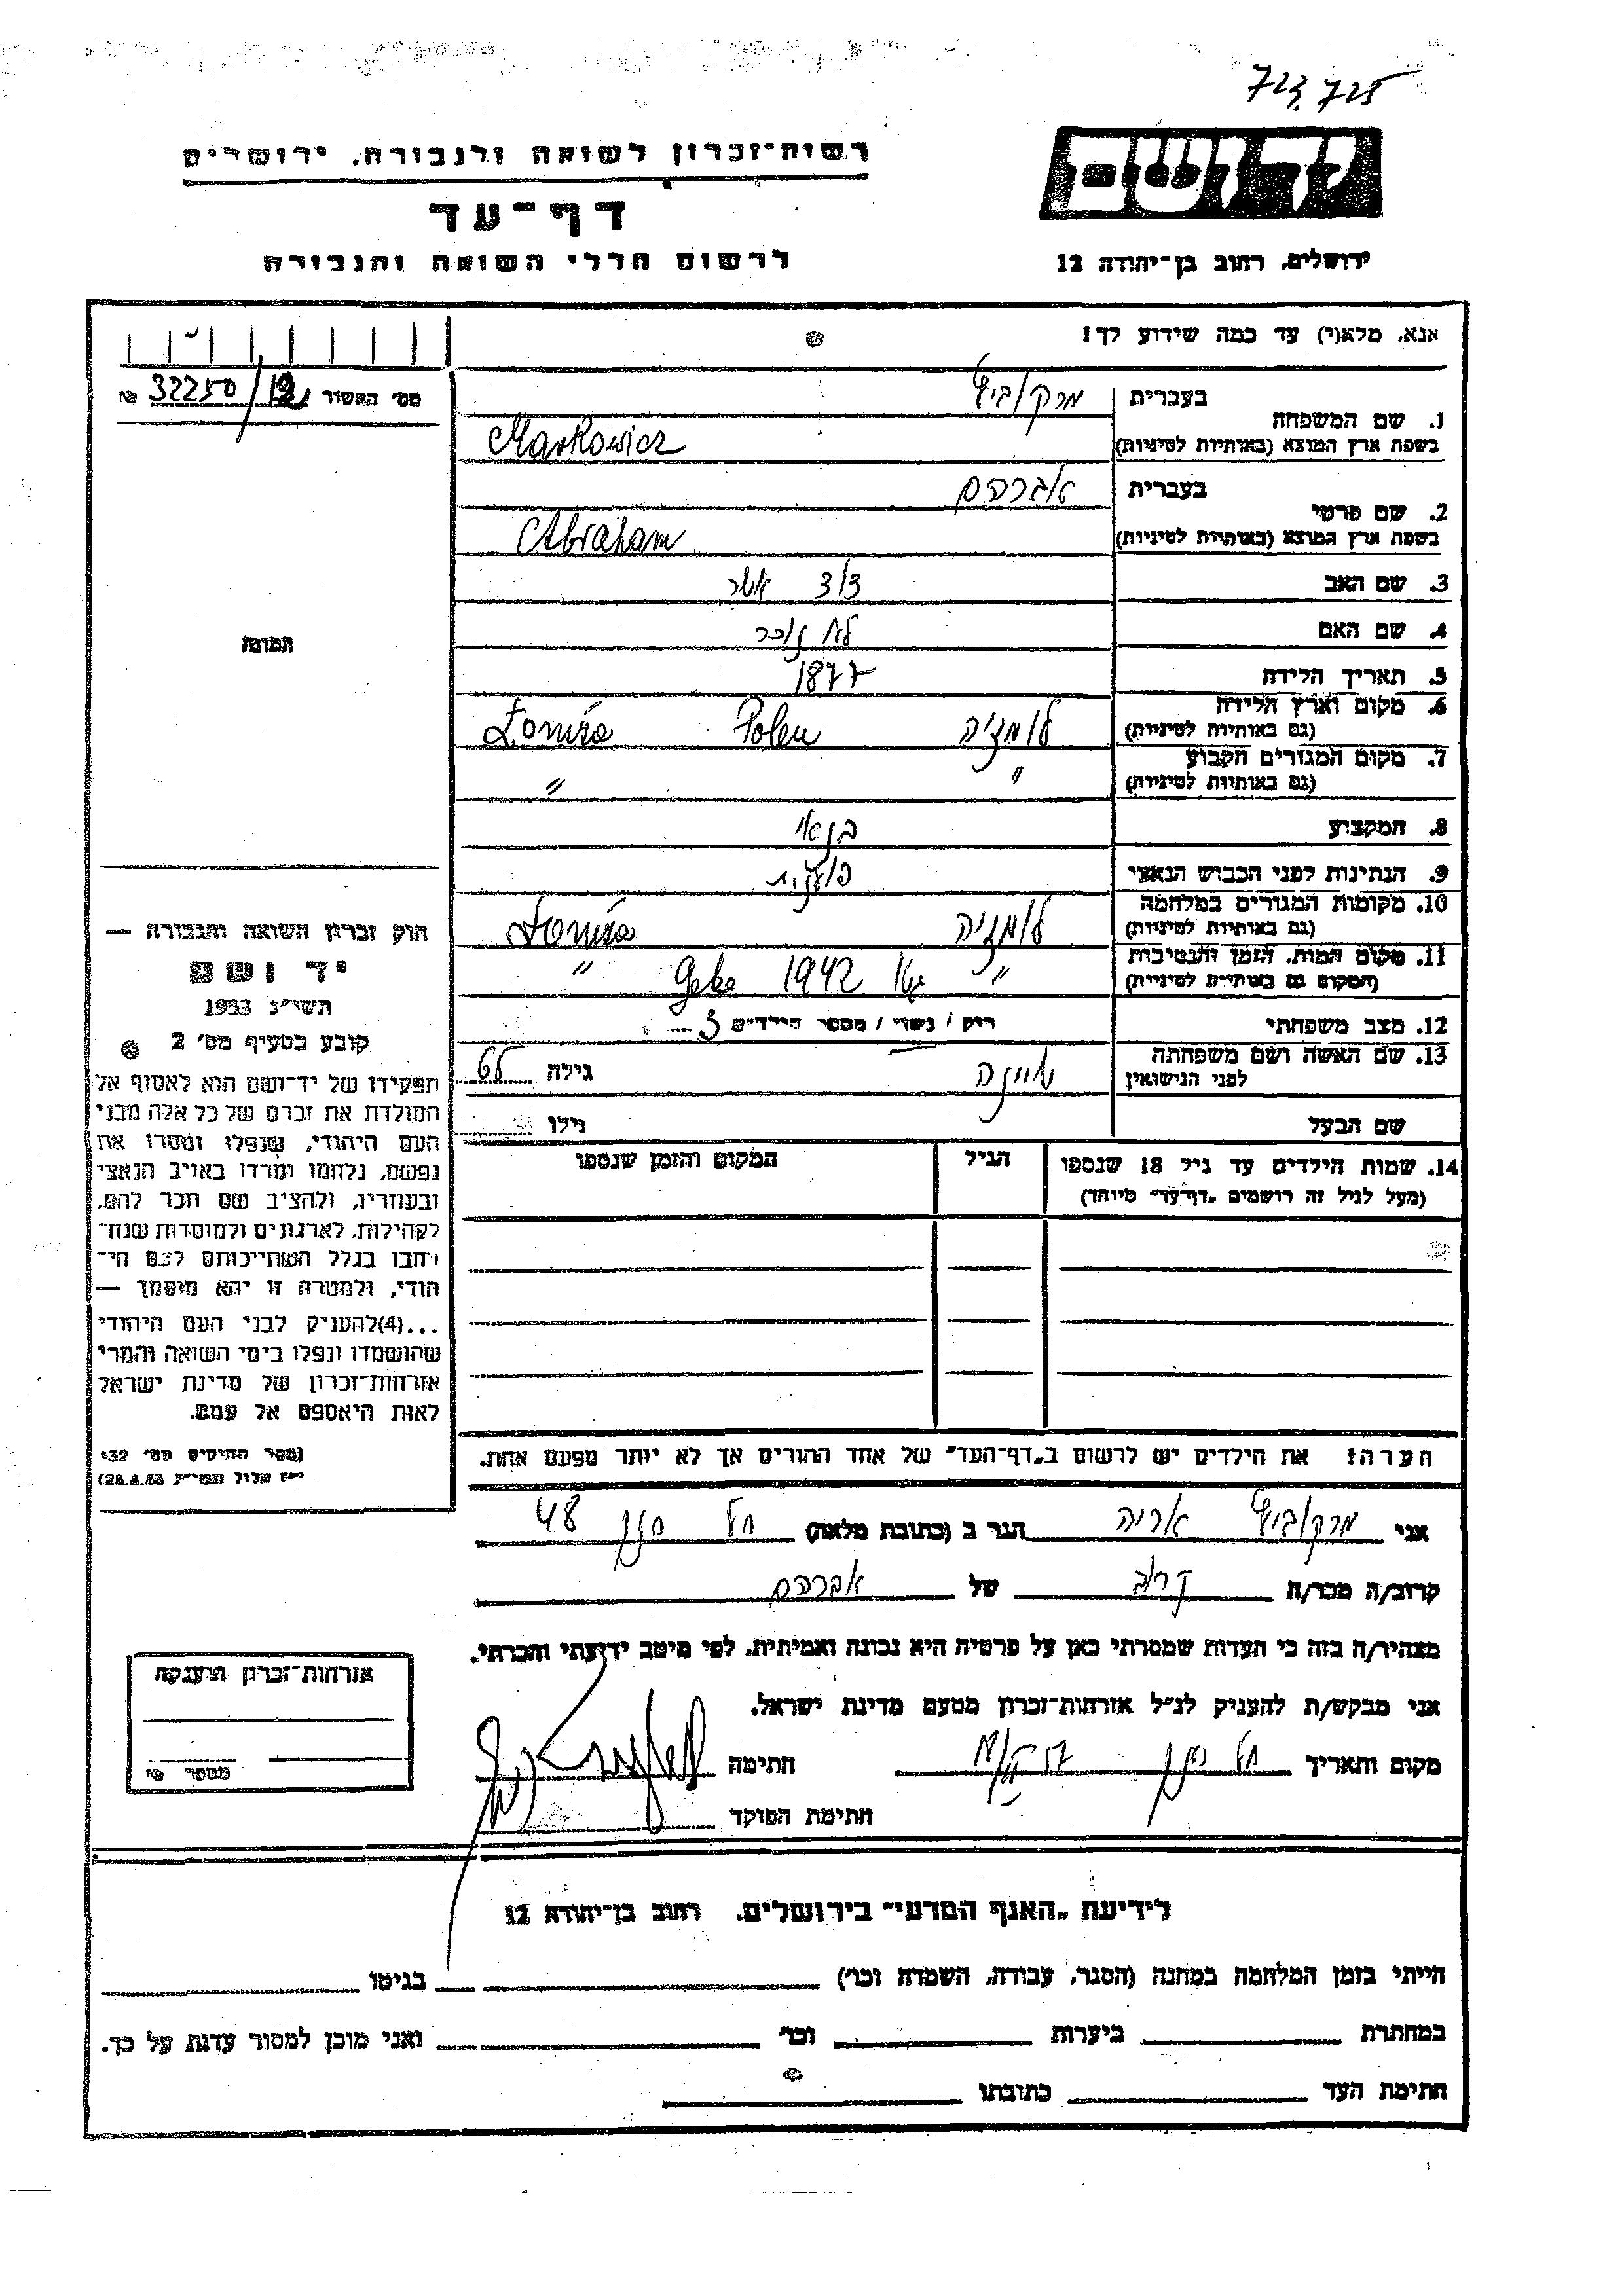 723, 725
רשות־זכרון לשואה ולגבורה, ירושלים
יד ושם
דף־עד
לרשום חללי השואה והגבורה
ירושלים, רחוב בן־יהודה 12
אנא, מלא(י) עד כמה שידוע לך!
מס׳ האשור № 32250/
1. שם המשפחה
בעברית מרקוביץ
בשפת ארץ המוצא (באותיות לטיניות) Markowicz
2. שם פרטי
בעברית אברהם
בשפת ארץ המוצא (באותיות לטיניות) Abraham
3. שם האב אשר
4. שם האם לא זוכר
5. תאריך הלידה 1877
6. מקום וארץ הלידה
(גם באותיות לטיניות) לומז׳ה Polen Łomża
7. מקום המגורים הקבוע
(גם באותיות לטיניות) " "
8. המקצוע בנאי
9. הנתינות לפני הכבוש הנאצי פולנית
10. מקומות המגורים במלחמה
(גם באותיות לטיניות) לומז׳ה Łomża
11. מקום המות, הזמן והנסיבות
(המקום גם באותיות לטיניות) " גטו 1942 "
12. מצב משפחתי רוק / נשוי / מספר הילדים 3
13. שם האשה ושם משפחתה
לפני הנישואין גילה 65
שם הבעל גילו
14. שמות הילדים עד גיל 18 שנספו
(מעל לגיל זה רושמים "דף־עד" מיוחד)
הגיל
המקום והזמן שנספו
הערה: את הילדים יש לרשום ב"דף־העד" של אחד ההורים אך לא יותר מפעם אחת.
תמונה
חוק זכרון השואה והגבורה —
יד ושם
תשי״ג 1953
קובע בסעיף מס׳ 2
תפקידו של יד־ושם הוא לאסוף אל
המולדת את זכרם של כל אלה מבני
העם היהודי, שנפלו ומסרו את
נפשם, נלחמו ומרדו באויב הנאצי
ובעוזריו, ולהציב שם וזכר להם,
לקהילות, לארגונים ולמוסדות שנח־
רבו בגלל השתייכותם לעם הי־
הודי, ולמטרה זו יהא מוסמך —
...(4)להעניק לבני העם היהודי
שהושמדו ונפלו בימי השואה והמרי
אזרחות־זכרון של מדינת ישראל
לאות היאספם אל עמם.
(ספר החוקים מס׳ 132
י״ז אלול תשי״ג 28.8.53)
אני מרקוביץ אריה הגר ב (כתובת מלאה) 48
קרוב/ה מכר/ה קרוב של אברהם
מצהיר/ה בזה כי העדות שמסרתי כאן על פרטיה היא נכונה ואמיתית, לפי מיטב ידיעתי והכרתי.
אני מבקש/ת להעניק לנ״ל אזרחות־זכרון מטעם מדינת ישראל.
מקום ותאריך חתימה
חתימת הפוקד
אזרחות־זכרון הוענקה
מספר
לידיעת "האגף המדעי" בירושלים, רחוב בן־יהודה 12
הייתי בזמן המלחמה במחנה (הסגר, עבודה, השמדה וכו׳) בגיטו
במחתרת ביערות וכו׳ ואני מוכן למסור עדות על כך.
חתימת העד כתובתו